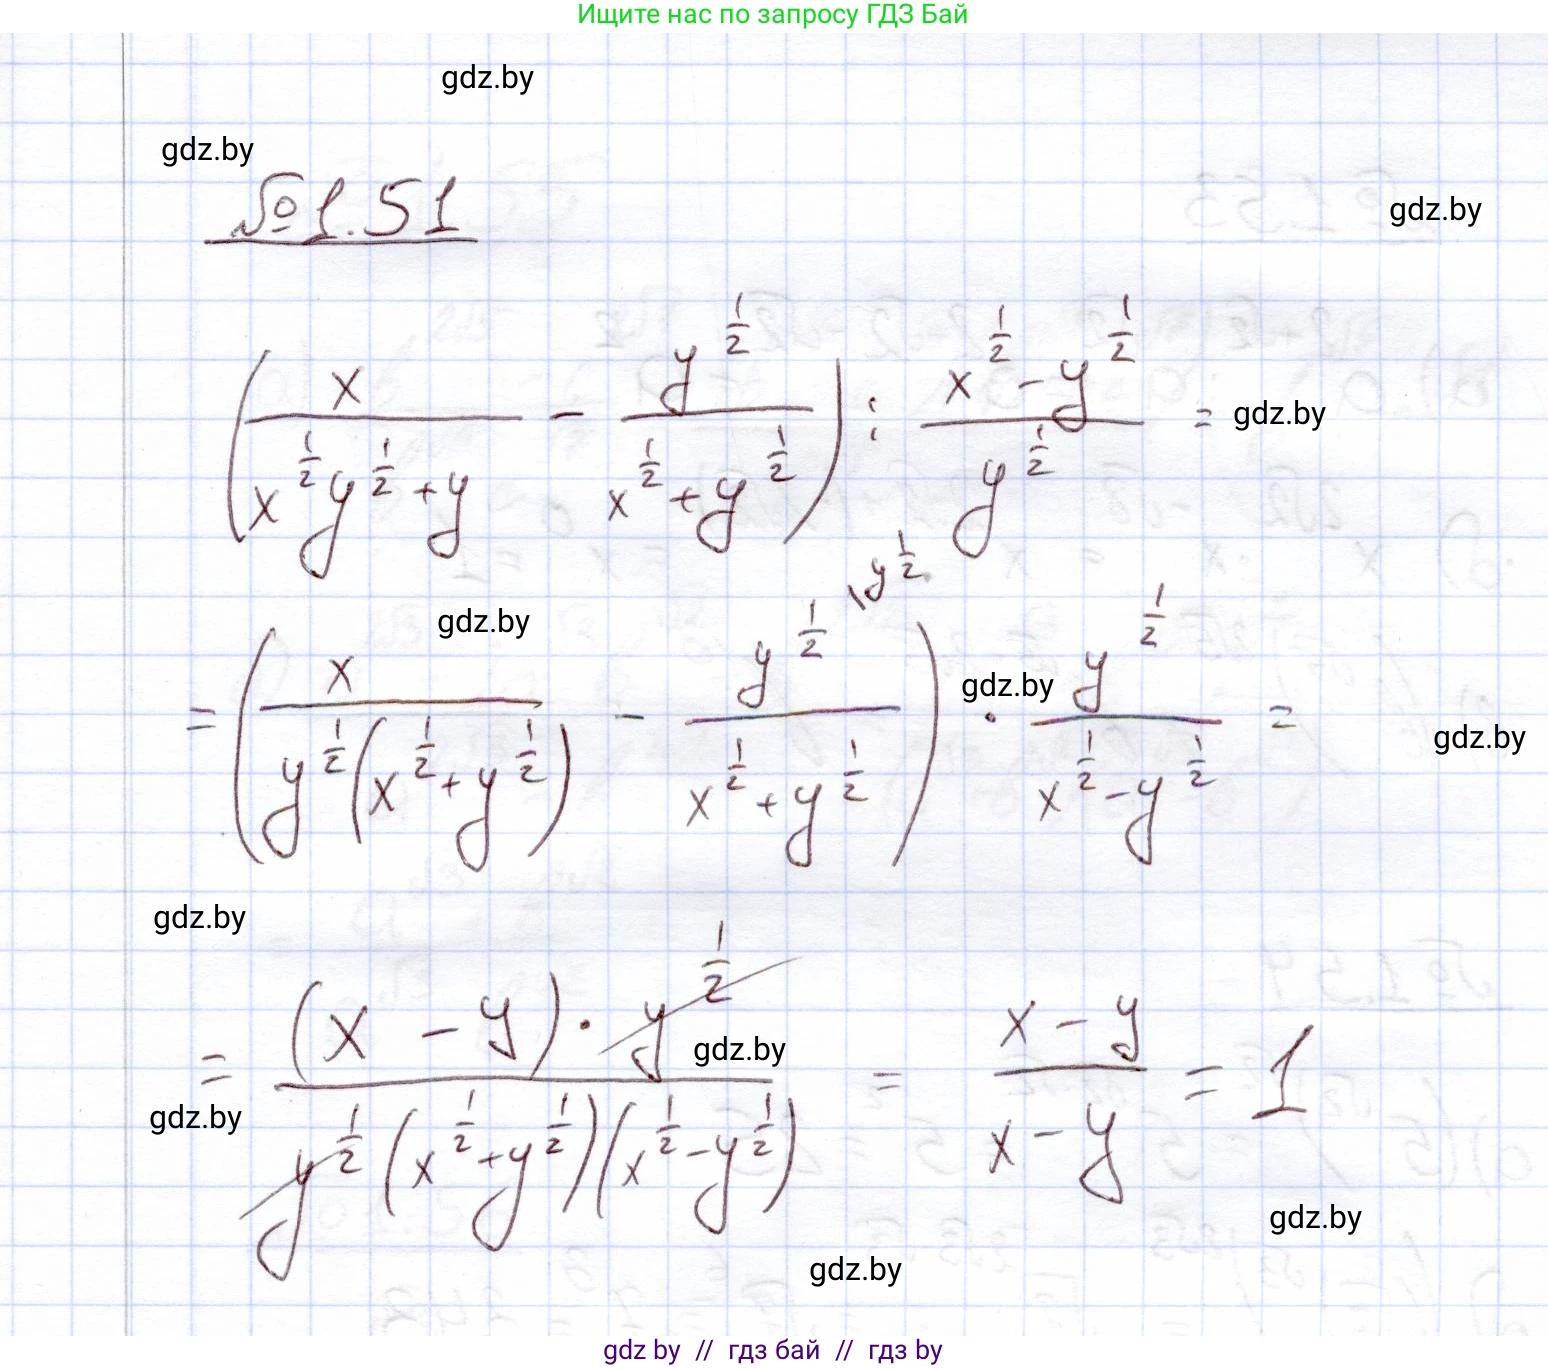 Ищите нас по запросу ГДЗ Бай
gdz.by
gdz.by
№1.51
gdz.by
(x/(x^(1/2)y^(1/2)+y) - y^(1/2)/(x^(1/2)+y^(1/2))) : (x^(1/2)-y^(1/2))/y^(1/2) =
gdz.by
gdz.by
= (x/(y^(1/2)(x^(1/2)+y^(1/2))) - y^(1/2)\y^(1/2)/(x^(1/2)+y^(1/2))) · y^(1/2)/(x^(1/2)-y^(1/2)) =
gdz.by
gdz.by
gdz.by
= ((x - y) · y^(1/2))/(y^(1/2)(x^(1/2)+y^(1/2))(x^(1/2)-y^(1/2))) = (x-y)/(x-y) = 1
gdz.by
gdz.by
gdz.by
gdz.by
gdz by // гдз бай // гдз by